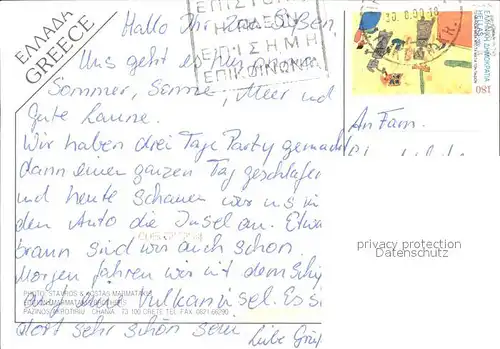 ΕΛΛΑΔΑ
GREECE
Hallo Ihr Süßen,
Uns geht es
Sommer, Sonne, Meer und
Gute Laune.
Wir haben drei Tage Party gemacht
dann einen ganzen Tag geschlafen
und heute schauen wir uns mit
dem Auto die Insel an. Etwas
braun sind wir auch schon.
Morgen fahren wir mit dem Schiff
auf eine Vulkaninsel. Es soll
dort sehr schön sein
Liebe Grüße
ΕΠΙΣΤΟΛΗ
ΕΠΙΣΗΜΗ
ΕΠΙΚΟΙΝΩΝΙΑ
ΕΛΛΗΝΙΚΗ ΔΗΜΟΚΡΑΤΙΑ
HELLAS
180
An Fam.
privacy protection
Datenschutz
PHOTO: STAVROS & KOSTAS MARMATAKIS
PAZINOS AKROTIRIU CHANIA 73 100 CRETE TEL. FAX 0821-66290